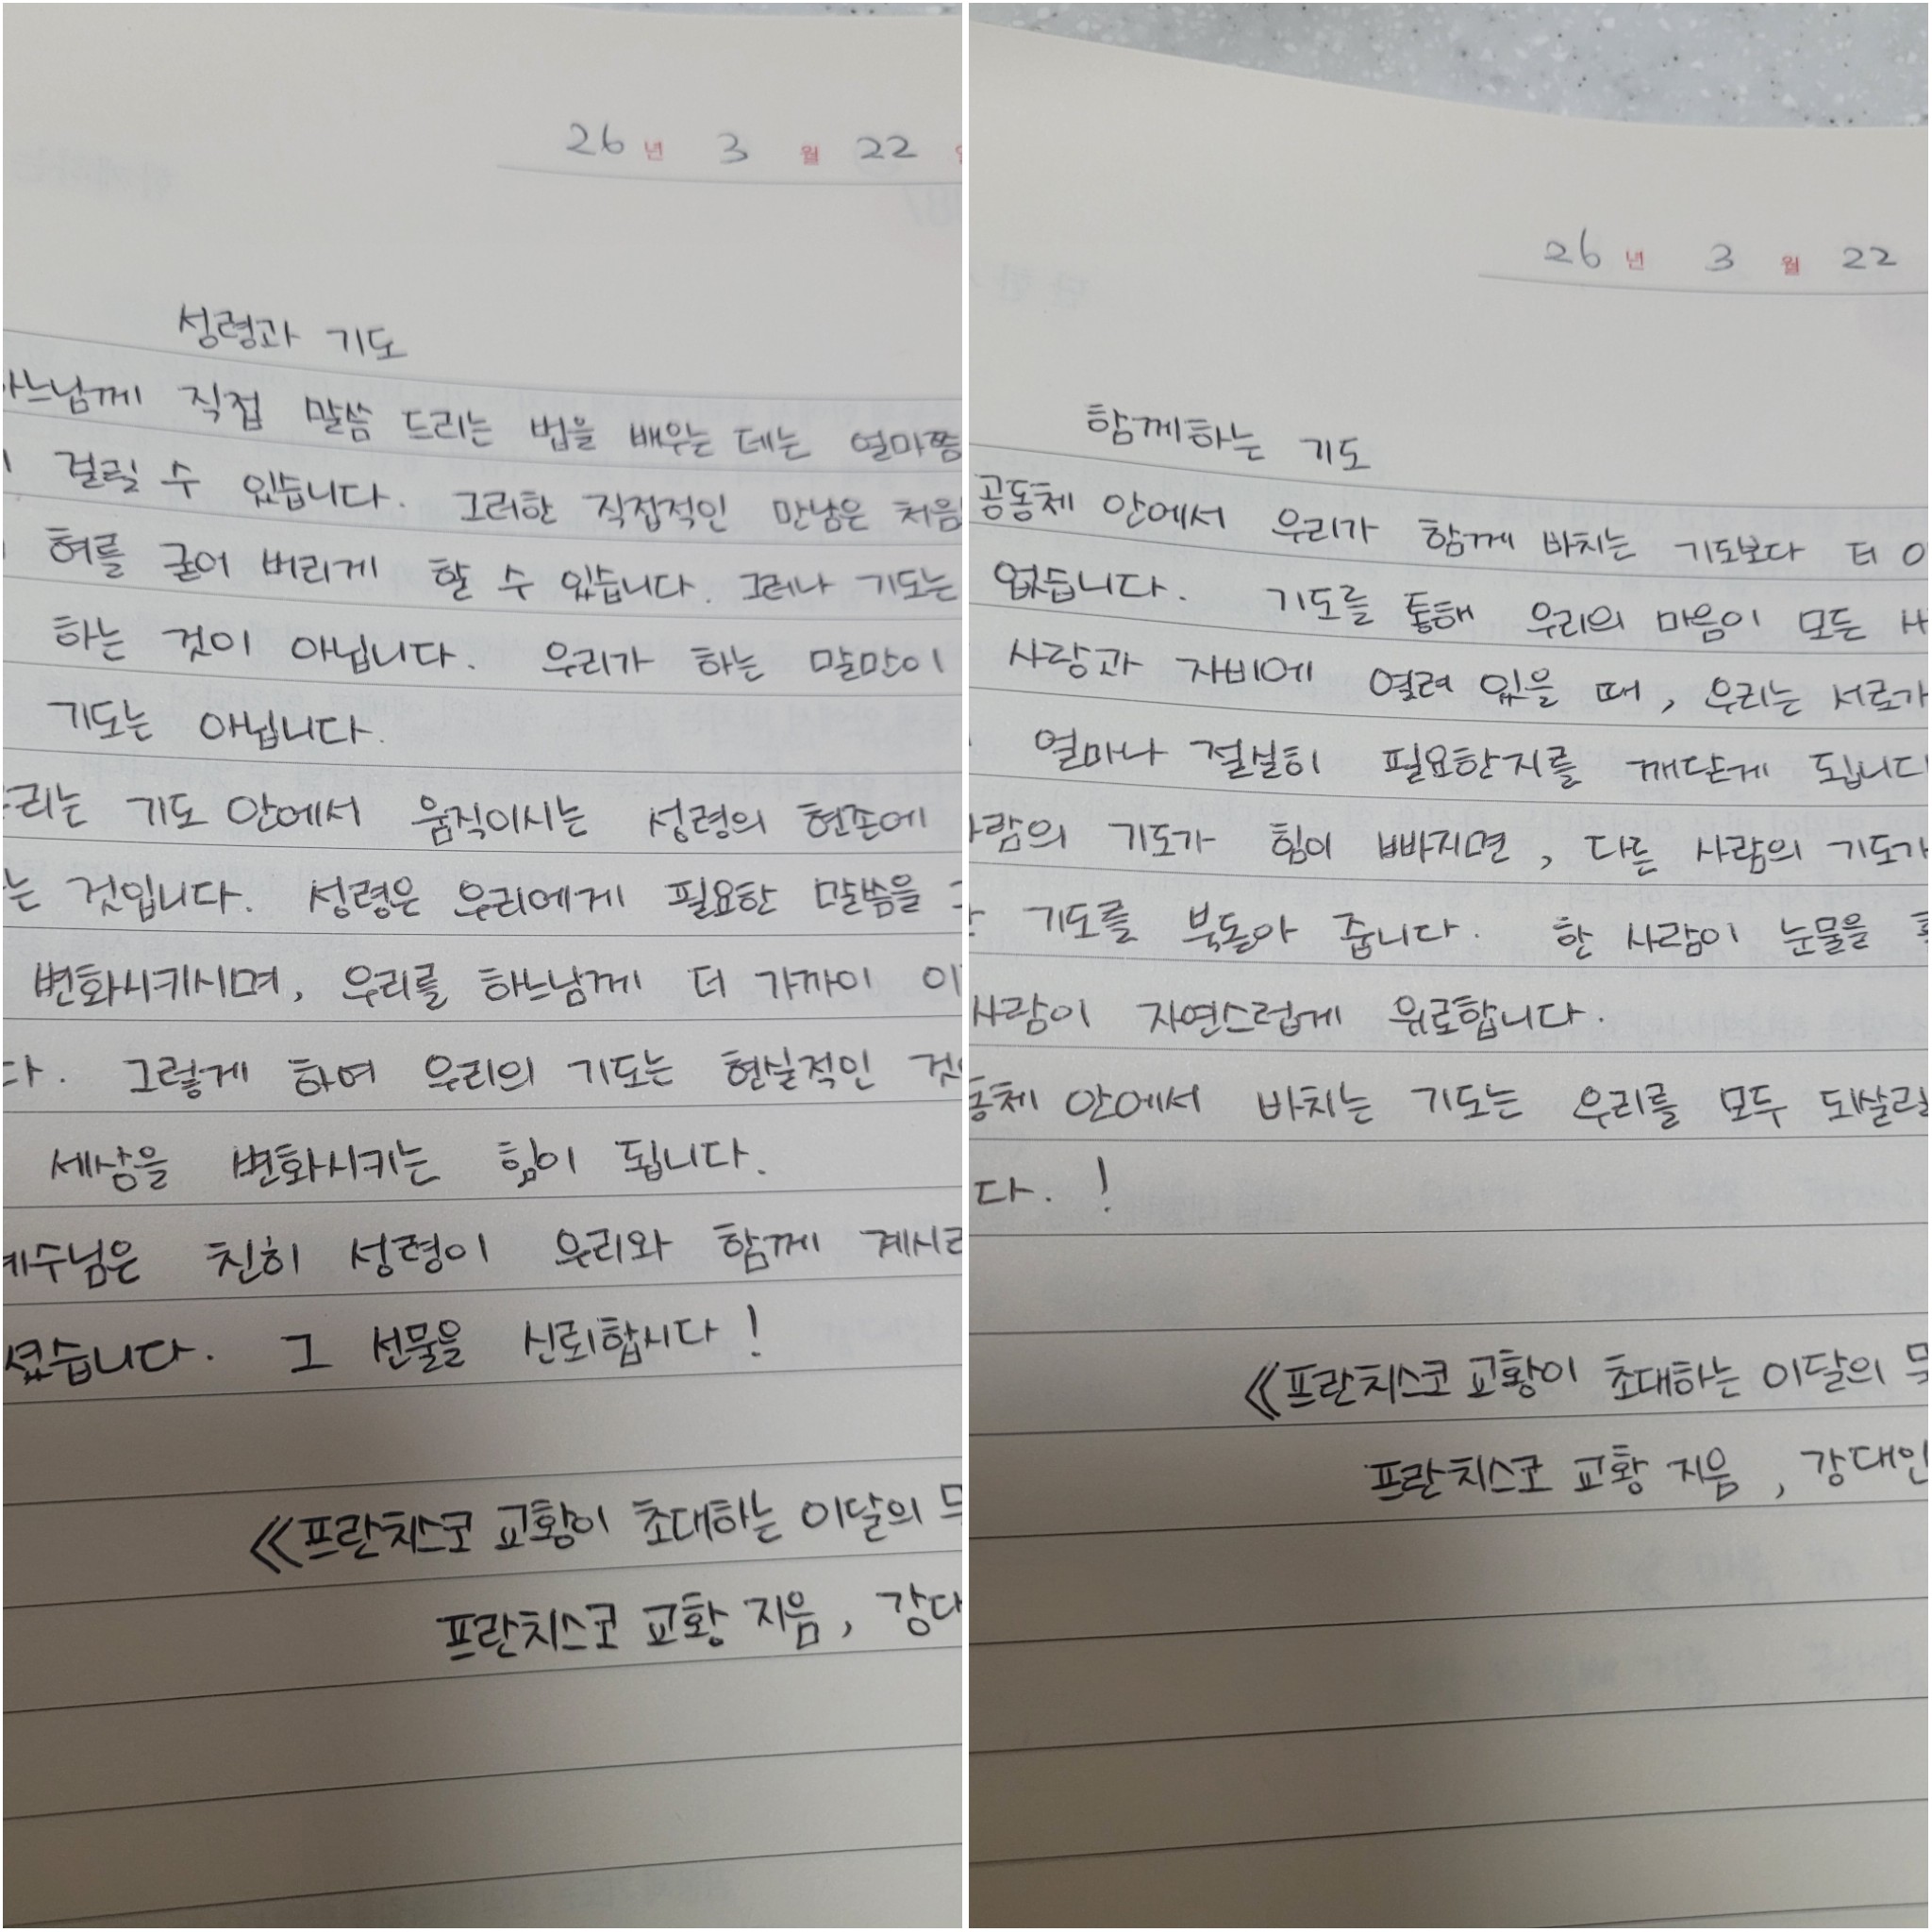 26년 3월 22
성령과 기도
하느님께 직접 말씀 드리는 법을 배우는 데는 얼마쯤
걸릴 수 있습니다. 그러한 직접적인 만남은 처음
혀를 굳어 버리게 할 수 있습니다. 그러나 기도는
하는 것이 아닙니다. 우리가 하는 말만이
기도는 아닙니다.
리는 기도 안에서 움직이시는 성령의 현존에
는 것입니다. 성령은 우리에게 필요한 말씀을
변화시키시며, 우리를 하느님께 더 가까이 이
다. 그렇게 하여 우리의 기도는 현실적인 것
세상을 변화시키는 힘이 됩니다.
예수님은 친히 성령이 우리와 함께 계시리
셨습니다. 그 선물을 신뢰합시다!
《프란치스코 교황이 초대하는 이달의
프란치스코 교황 지음, 강대
26년 3월 22
함께하는 기도
공동체 안에서 우리가 함께 바치는 기도보다 더
없습니다. 기도를 통해 우리의 마음이 모든
사랑과 자비에 열려 있을 때, 우리는 서로가
얼마나 절실히 필요한지를 깨닫게 됩니다
사람의 기도가 힘이 빠지면, 다른 사람의 기도가
기도를 북돋아 줍니다. 한 사람이 눈물을
사람이 자연스럽게 위로합니다.
동체 안에서 바치는 기도는 우리를 모두 되살릴
다.!
《프란치스코 교황이 초대하는 이달의
프란치스코 교황 지음, 강대인